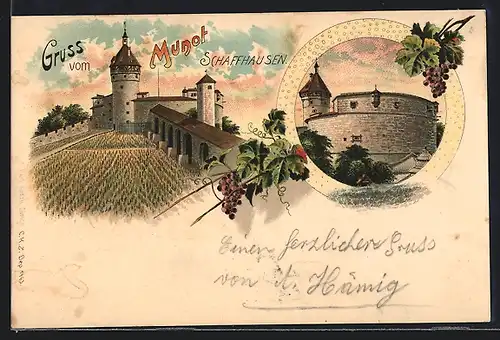 Gruss
vom Munot
Schaffhausen
Einen herzlichen Gruss
von A. Hämig